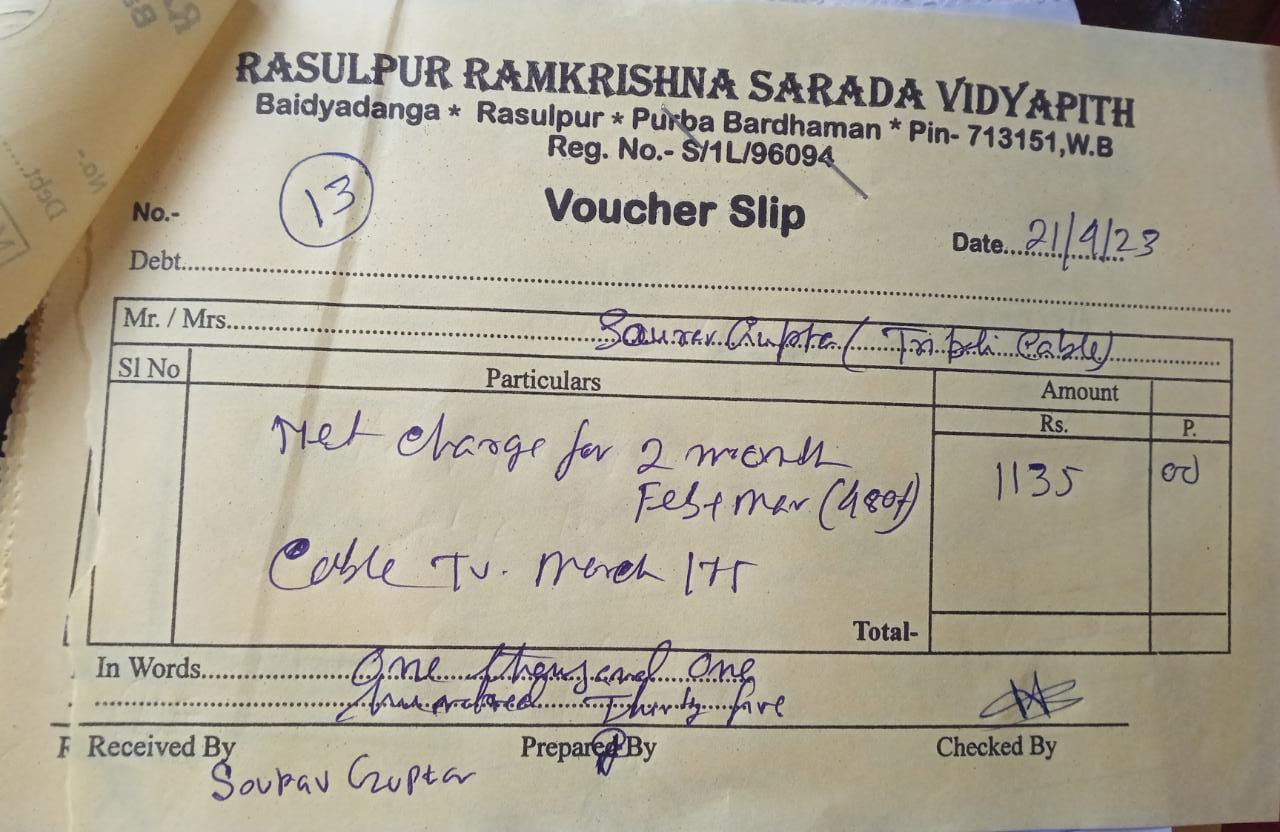 RASULPUR RAMKRISHNA SARADA VIDYAPITH
Baidyadanga * Rasulpur * Purba Bardhaman * Pin- 713151,W.B
Reg. No.- S/1L/96094
Voucher Slip
No.- 13
Date... 21/4/23
Debt.....
Mr. / Mrs..... Saurav Gupta (Tripoli Cable)
Sl No Particulars Amount
Rs. P.
Net charge for 2 month 1135 00
Feb + Mar (480/)
Cable Tv. March 175
Total-
In Words..... One thousand one
hundred Thirty five
Received By Prepared By Checked By
Sourav Gupta